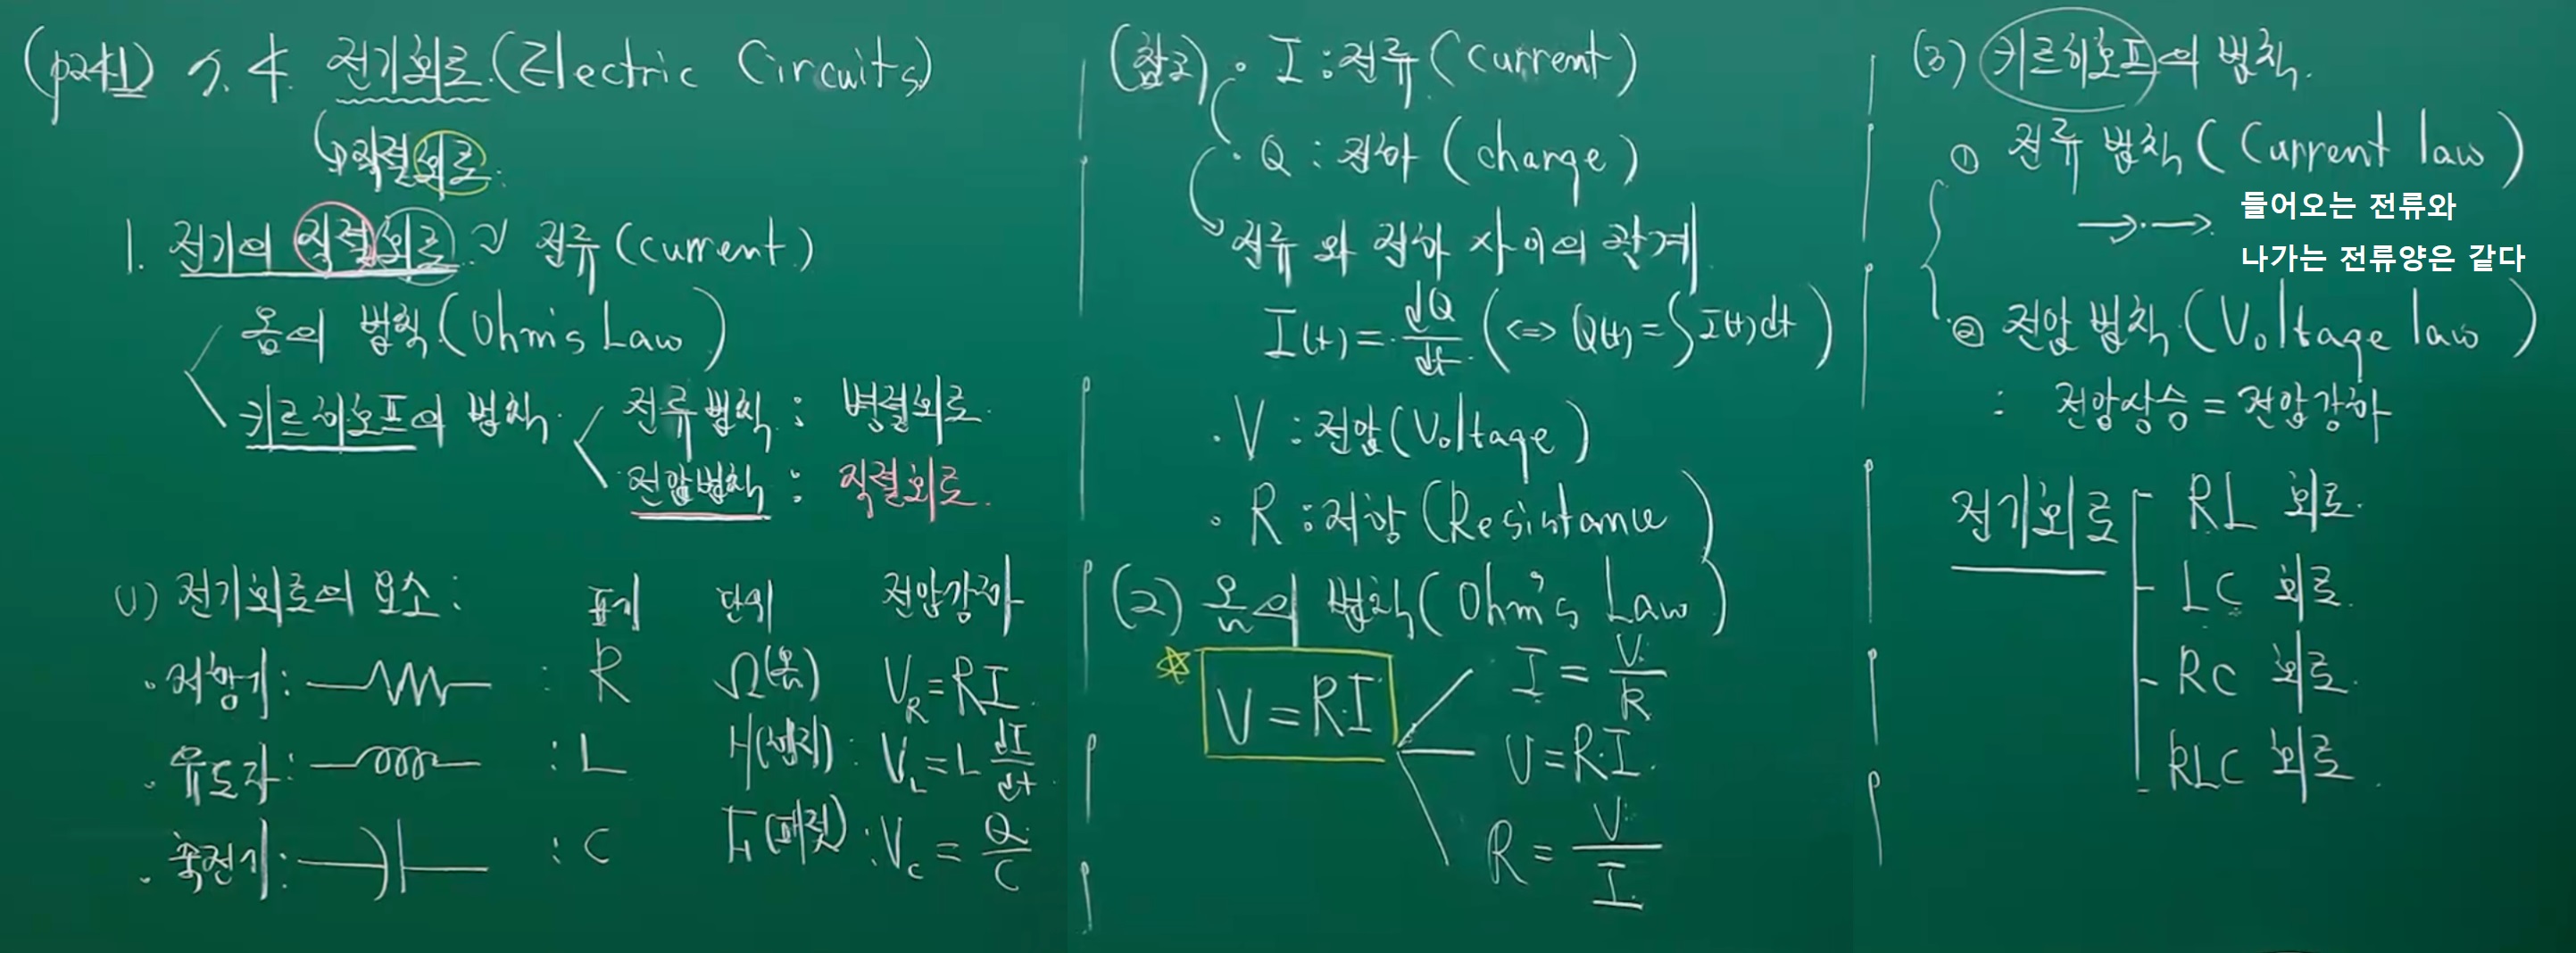 (part1) 7.4. 전기회로 (Electric Circuits)
직렬회로.
1. 전기의 직렬회로 ~ 전류 (current)
옴의 법칙 (Ohm's Law)
키르히호프의 법칙
전류법칙 : 병렬회로.
전압법칙 : 직렬회로.
(1) 전기회로의 요소 : 표기 단위 전압강하
· 저항기 : : R Ω(옴) V_R = RI.
· 유도자 : : L H(헨리) : V_L = L dI/dt
· 축전기 : : C F(패럿) : V_C = Q/C
(참고) · I : 전류 (Current)
· Q : 전하 (charge)
전류와 전하 사이의 관계
I(t) = dQ/dt (⇔ Q(t) = ∫I(t)dt)
· V : 전압 (Voltage)
· R : 저항 (Resistance)
(2) 옴의 법칙 (Ohm's Law)
☆ V = R·I
I = V/R
V = R·I.
R = V/I
(3) 키르히호프의 법칙.
① 전류 법칙 (Current law)
→·→ 들어오는 전류와
나가는 전류양은 같다
② 전압 법칙 (Voltage law)
: 전압상승 = 전압강하
전기회로
RL 회로.
LC 회로.
RC 회로.
RLC 회로.